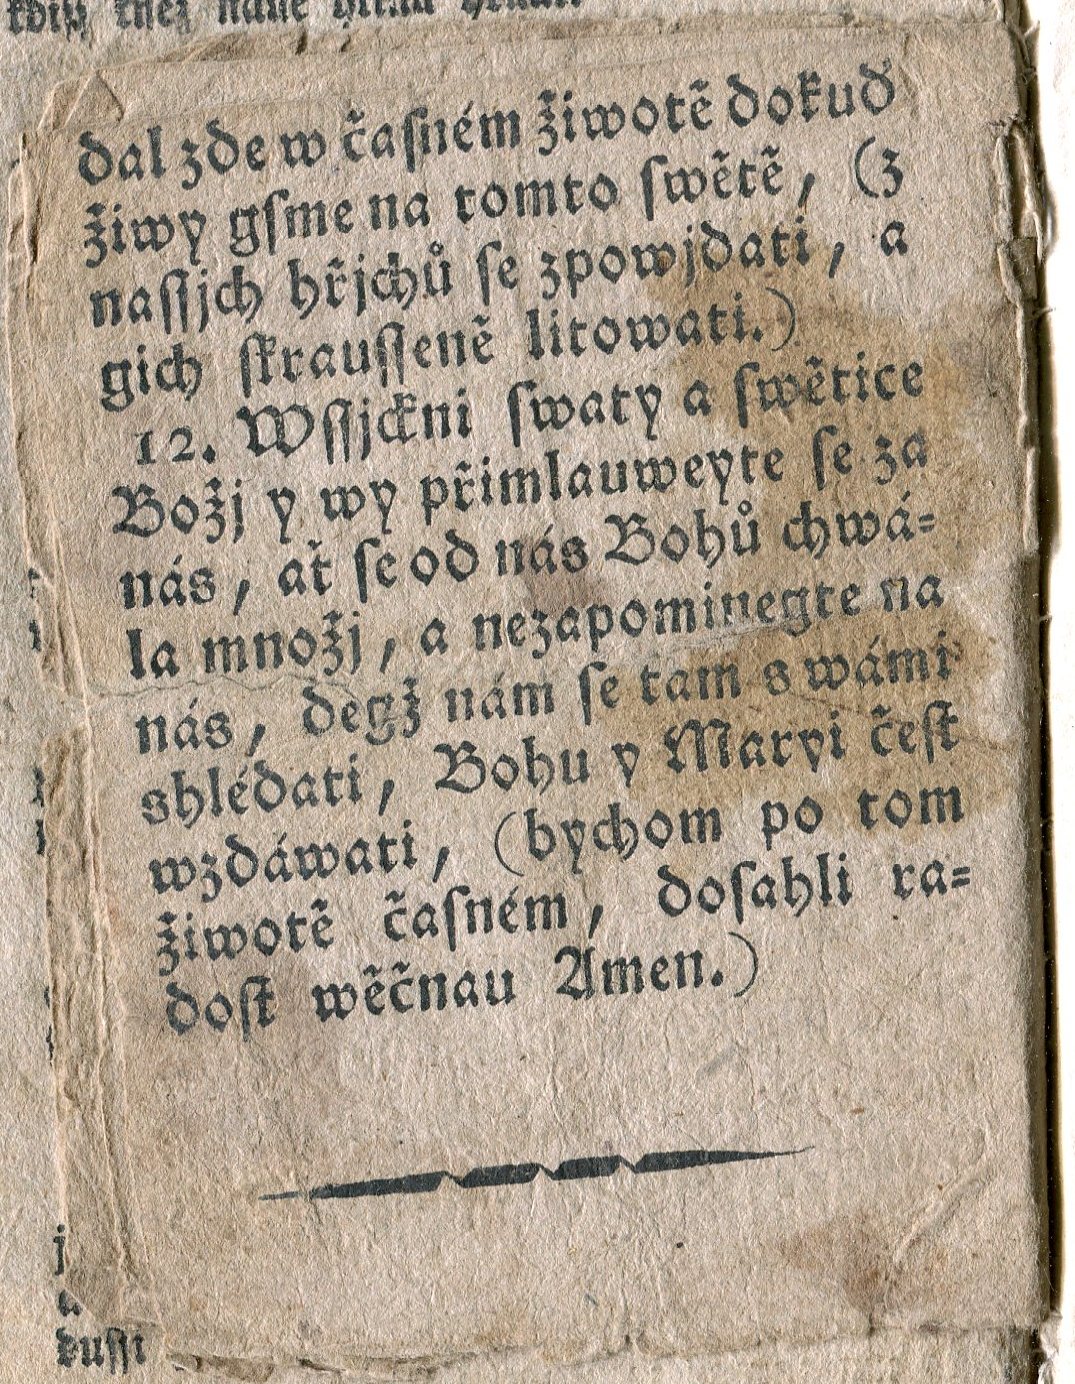 dal zde w časném žiwotě dokuď
žiwy gſme na tomto ſwětě, (z
naſſjch hřjchů ſe zpowjdati, a
gich ſkrauſſeně litowati.)
12. Wſſjckni ſwaty a ſwětice
Božj y wy přimlauweyte ſe za
nás, ať ſe od nás Bohů chwá⸗
la množj, a nezapominegte na
nás, degž nám ſe tam s wámi
shlédati, Bohu y Maryi čeſt
wzdáwati, (bychom po tom
žiwotě čaſném, doſahli ra⸗
doſt wěčnau Amen.)
kuſſi